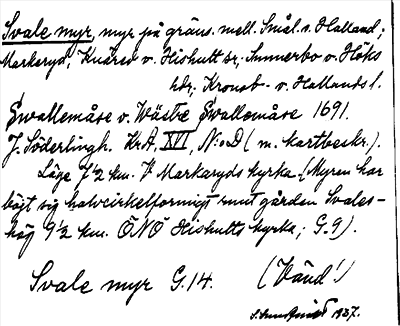 Svale myr, myr på gräns. mell. Smål. o. Halland;
Markaryd, Knäred o. Hishult sr; Sunnerbo o. Höks
hdr; Kronob.- o. Hallands l.
Swallemåse o. Wästre Swallemåse 1691.
J. Söderlingh. Kr.A. XVI, N:o D (m. kartbeskr.).
Läge 7 1/2 km. V Markaryds kyrka. (Myren har
böjt sig halvcirkelformigt runt gården Svales-
hög 9 1/2 km. ÖNÖ Hishults kyrka; G.9).
Svale myr G.14. (Vänd!)
1937.